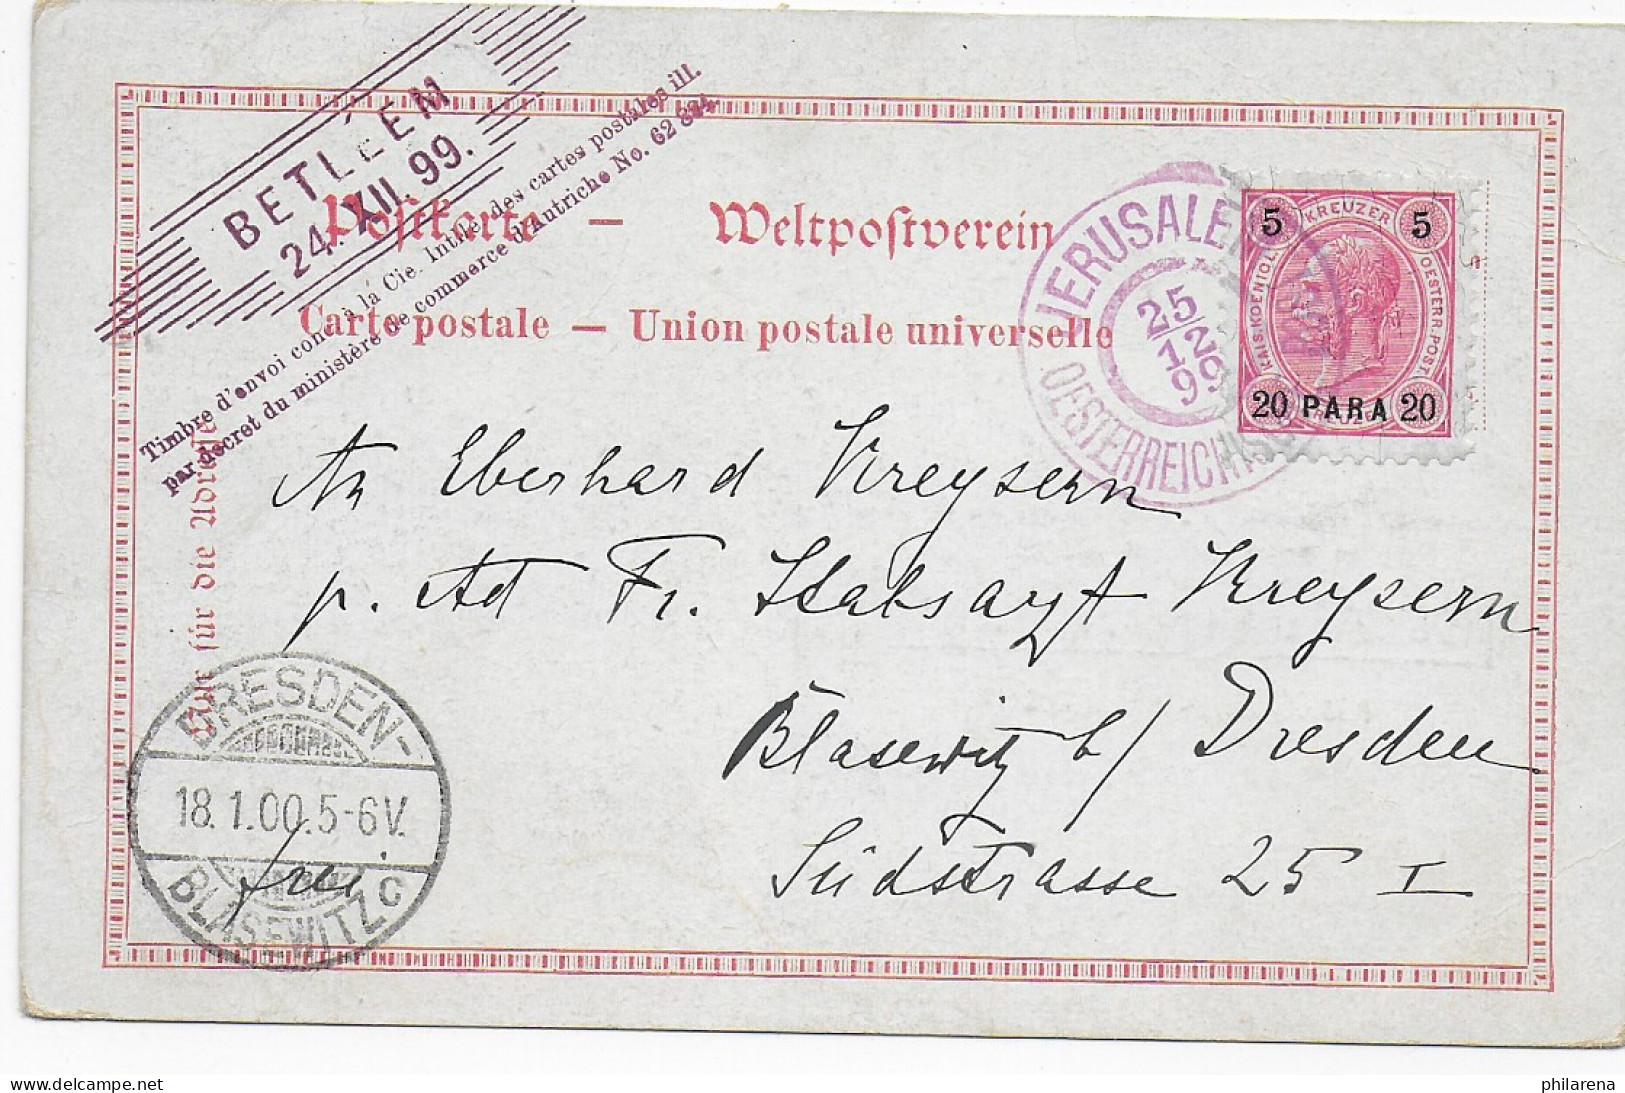 BETLÉEM
24. XII. 99.
Timbre d'envoi conc. à la Cie. Intlle. des cartes postales ill.
par decret du ministère de commerce d'Autriche No. 62 824.
Postkarte — Weltpostverein
Carte postale — Union postale universelle
Nur für die Adresse
JERUSALEM
25
12
99
OESTERREICHISCHE
5 KREUZER 5
KAIS. KOENIGL. OESTERR. POST.
20 PARA 20
KREUZ
An Eberhard Kreysern
p. Ad Fr. Stabsarzt Kreysern
Blasewitz b/ Dresden
Südstrasse 25 I
DRESDEN-
18. 1. 00. 5-6 V.
BLASEWITZ c
philarena